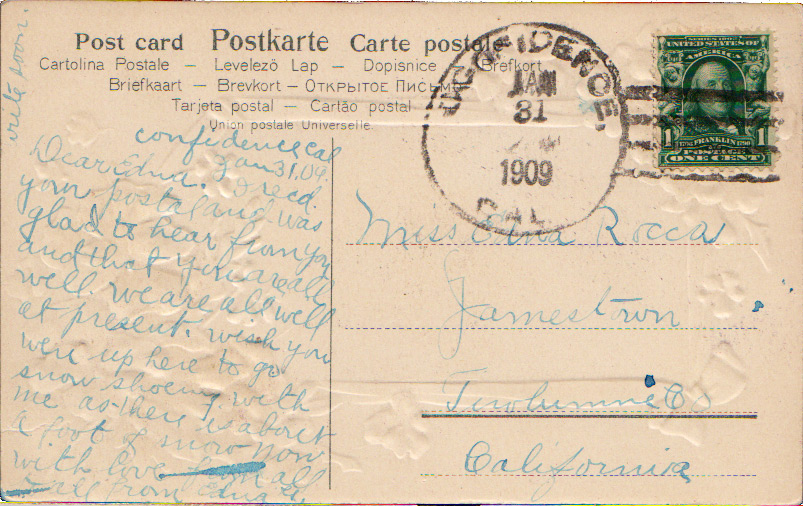 write soon.
Post card Postkarte Carte postale
Cartolina Postale — Levelező Lap — Dopisnice — Brefkort
Briefkaart — Brevkort — Открытое Письмо
Tarjeta postal — Cartão postal
Union postale Universelle.
CONFIDENCE,
JAN
31
1909
CAL.
SERIES 1902
UNITED STATES OF
AMERICA
1 FRANKLIN 1
POSTAGE
ONE CENT
confidence cal
Jan 31, 09.
Dear Edna. I recd
your postal and was
glad to hear from you
and that you are all
well. we are all well
at present. wish you
were up here to go
snow shoeing with
me as there is about
a foot of snow now
with love from all
to all from Edna
Miss Edna Rocca
Jamestown
Tuolumne Co
California